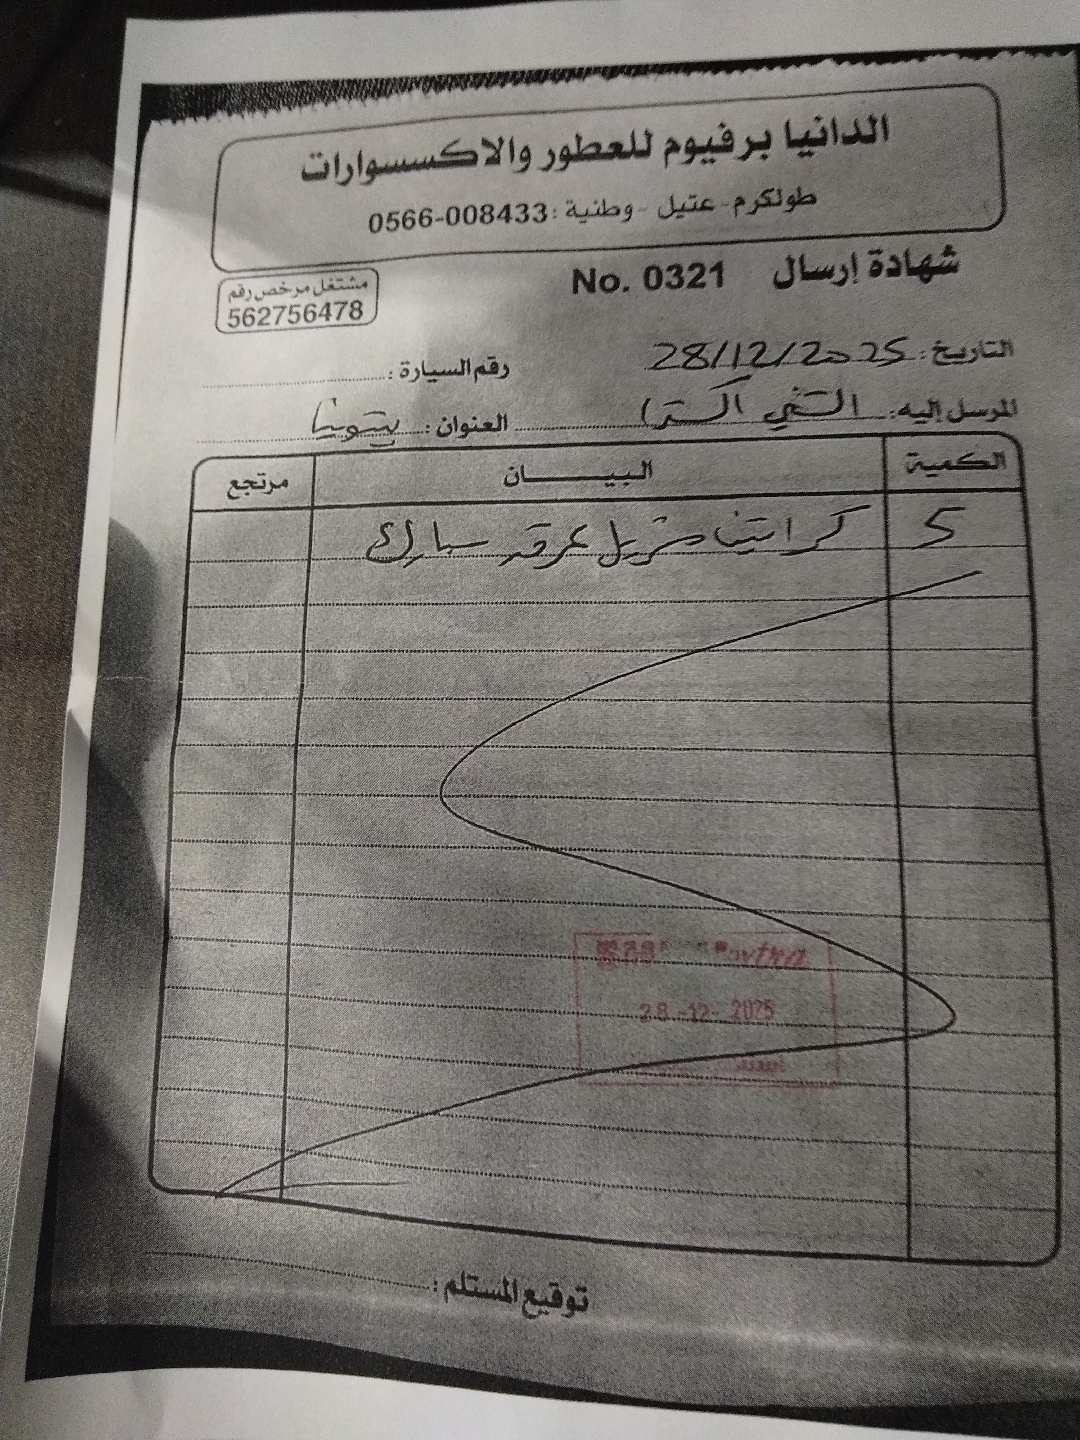 الدانيا برفيوم للعطور والاكسسوارات
طولكرم - عتيل - وطنية : 0566-008433
شهادة إرسال No. 0321
مشتغل مرخص رقم
562756478
التاريخ: 28/12/2025 رقم السيارة:
المرسل إليه: اكسترا العنوان:
الكمية البيـــــان مرتجع
5 كراتين مزيل عرق
28-12-2025
توقيع المستلم: